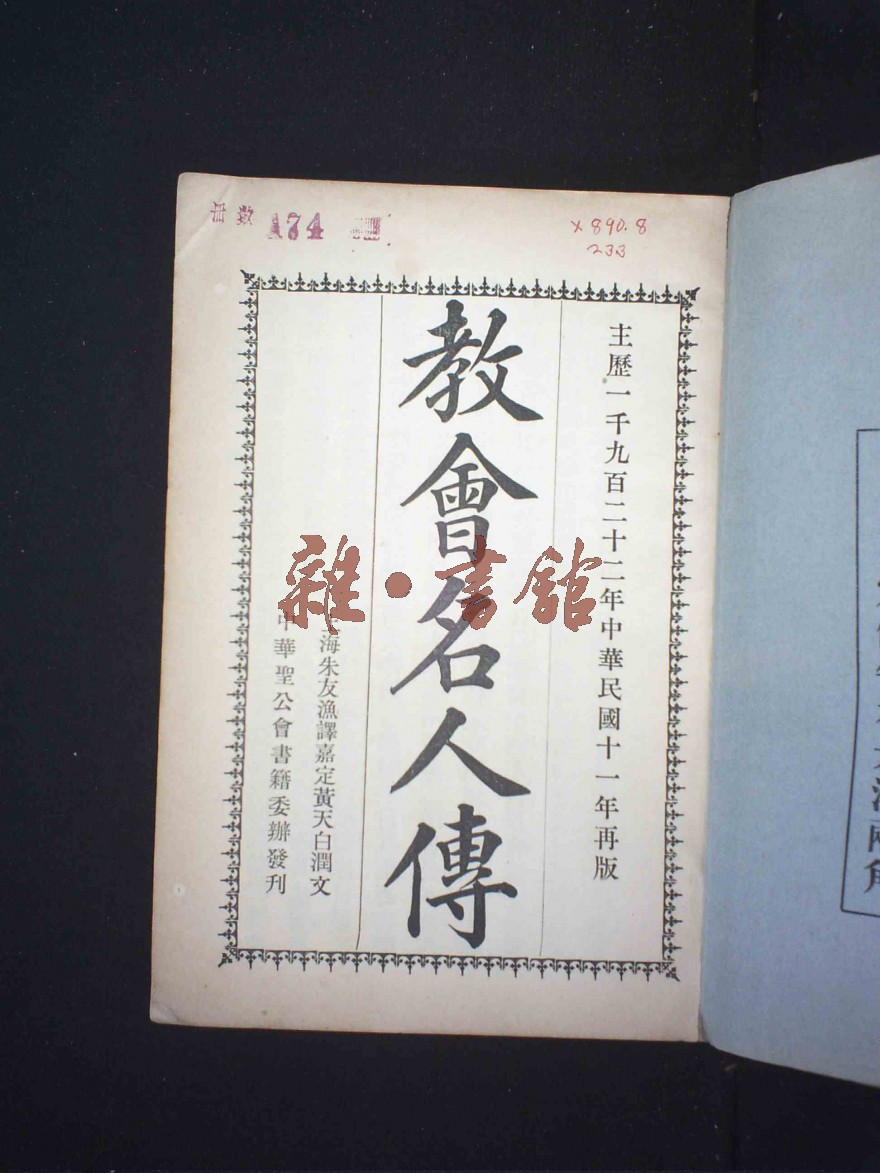 174
x 890.8
233
主歷一千九百二十二年中華民國十一年再版
教會名人傳
海朱友漁譯嘉定黃天白潤文
中華聖公會書籍委辦發刊
雜·書館